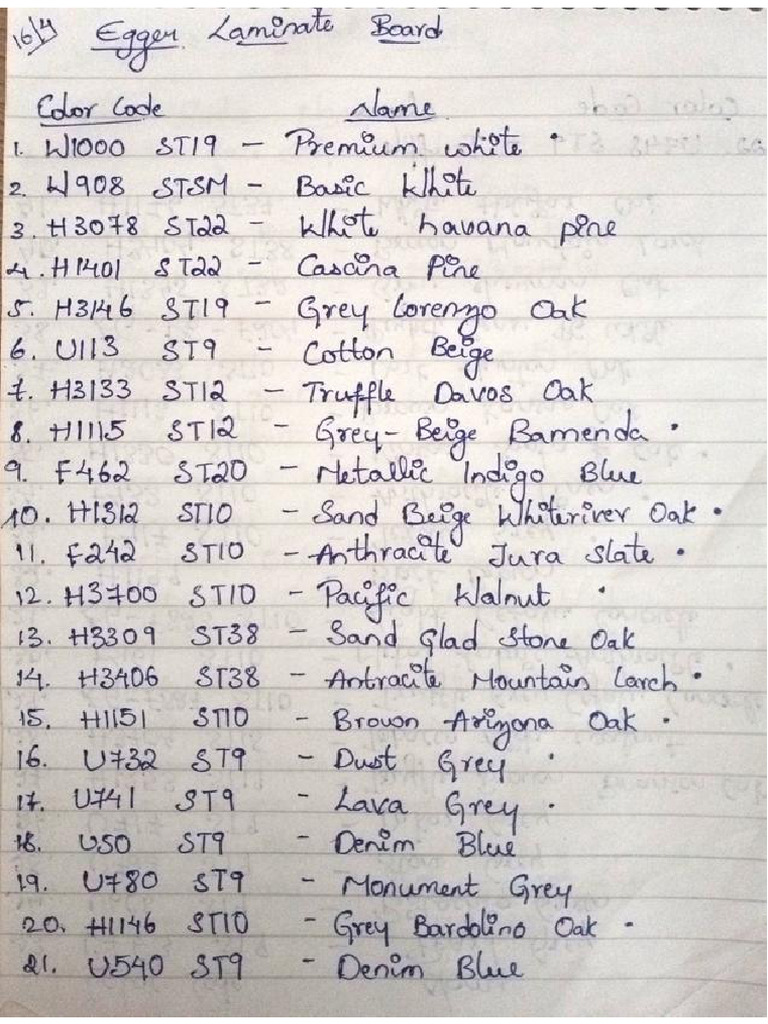 16/4 Egger Laminate Board
Color Code Name
1. W1000 ST19 - Premium white •
2. W908 STSM - Basic White
3. H3078 ST22 - White havana pine
4. H1401 ST22 - Cascina Pine
5. H3146 ST19 - Grey Lorenzo Oak
6. U113 ST9 - Cotton Beige
7. H3133 ST12 - Truffle Davos Oak
8. H1115 ST12 - Grey-Beige Bamenda •
9. F462 ST20 - Metallic Indigo Blue
10. H1312 ST10 - Sand Beige Whiteriver Oak •
11. F242 ST10 - Anthracite Jura Slate •
12. H3700 ST10 - Pacific Walnut •
13. H3309 ST38 - Sand Glad Stone Oak
14. H3406 ST38 - Antracite Mountain Larch •
15. H1151 ST10 - Brown Arizona Oak •
16. U732 ST9 - Dust Grey •
17. U741 ST9 - Lava Grey •
18. U50 ST9 - Denim Blue
19. U780 ST9 - Monument Grey
20. H1146 ST10 - Grey Bardolino Oak •
21. U540 ST9 - Denim Blue